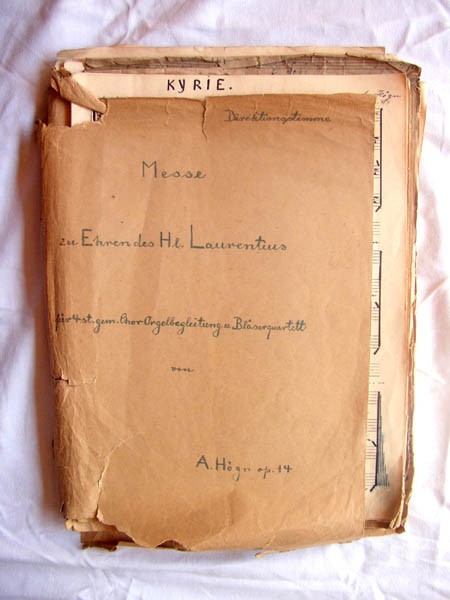 KYRIE.
Högn
Direktionsstimme
Messe
zu Ehren des Hl. Laurentius
für 4 st. gem. Chor Orgelbegleitung u. Bläserquartett
von
A. Högn op. 14